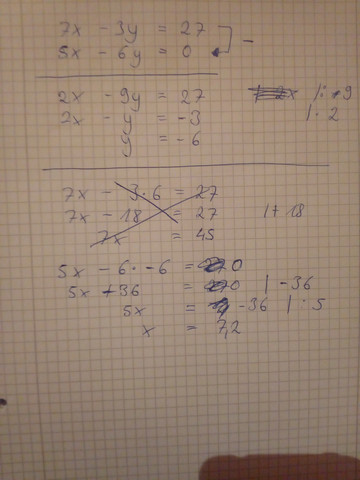 7x - 3y = 27
5x - 6y = 0 -
2x - 9y = 27 |: -9
2x - y = -3 | · 2
y = -6
7x - 3·6 = 27
7x - 18 = 27 |+ 18
7x = 45
5x - 6 · -6 = 0
5x +36 = 0 | -36
5x = -36 | · 5
x = 7,2